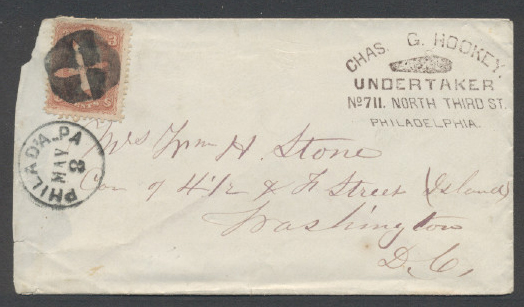 3
CHAS. G. HOOKEY.
UNDERTAKER
No 711. NORTH THIRD ST.
PHILADELPHIA.
PHILAD'A. PA
MAY
8
Mrs Wm H. Stone
Cor of 4 1/2 & F Street (Island)
Washington
D.C.